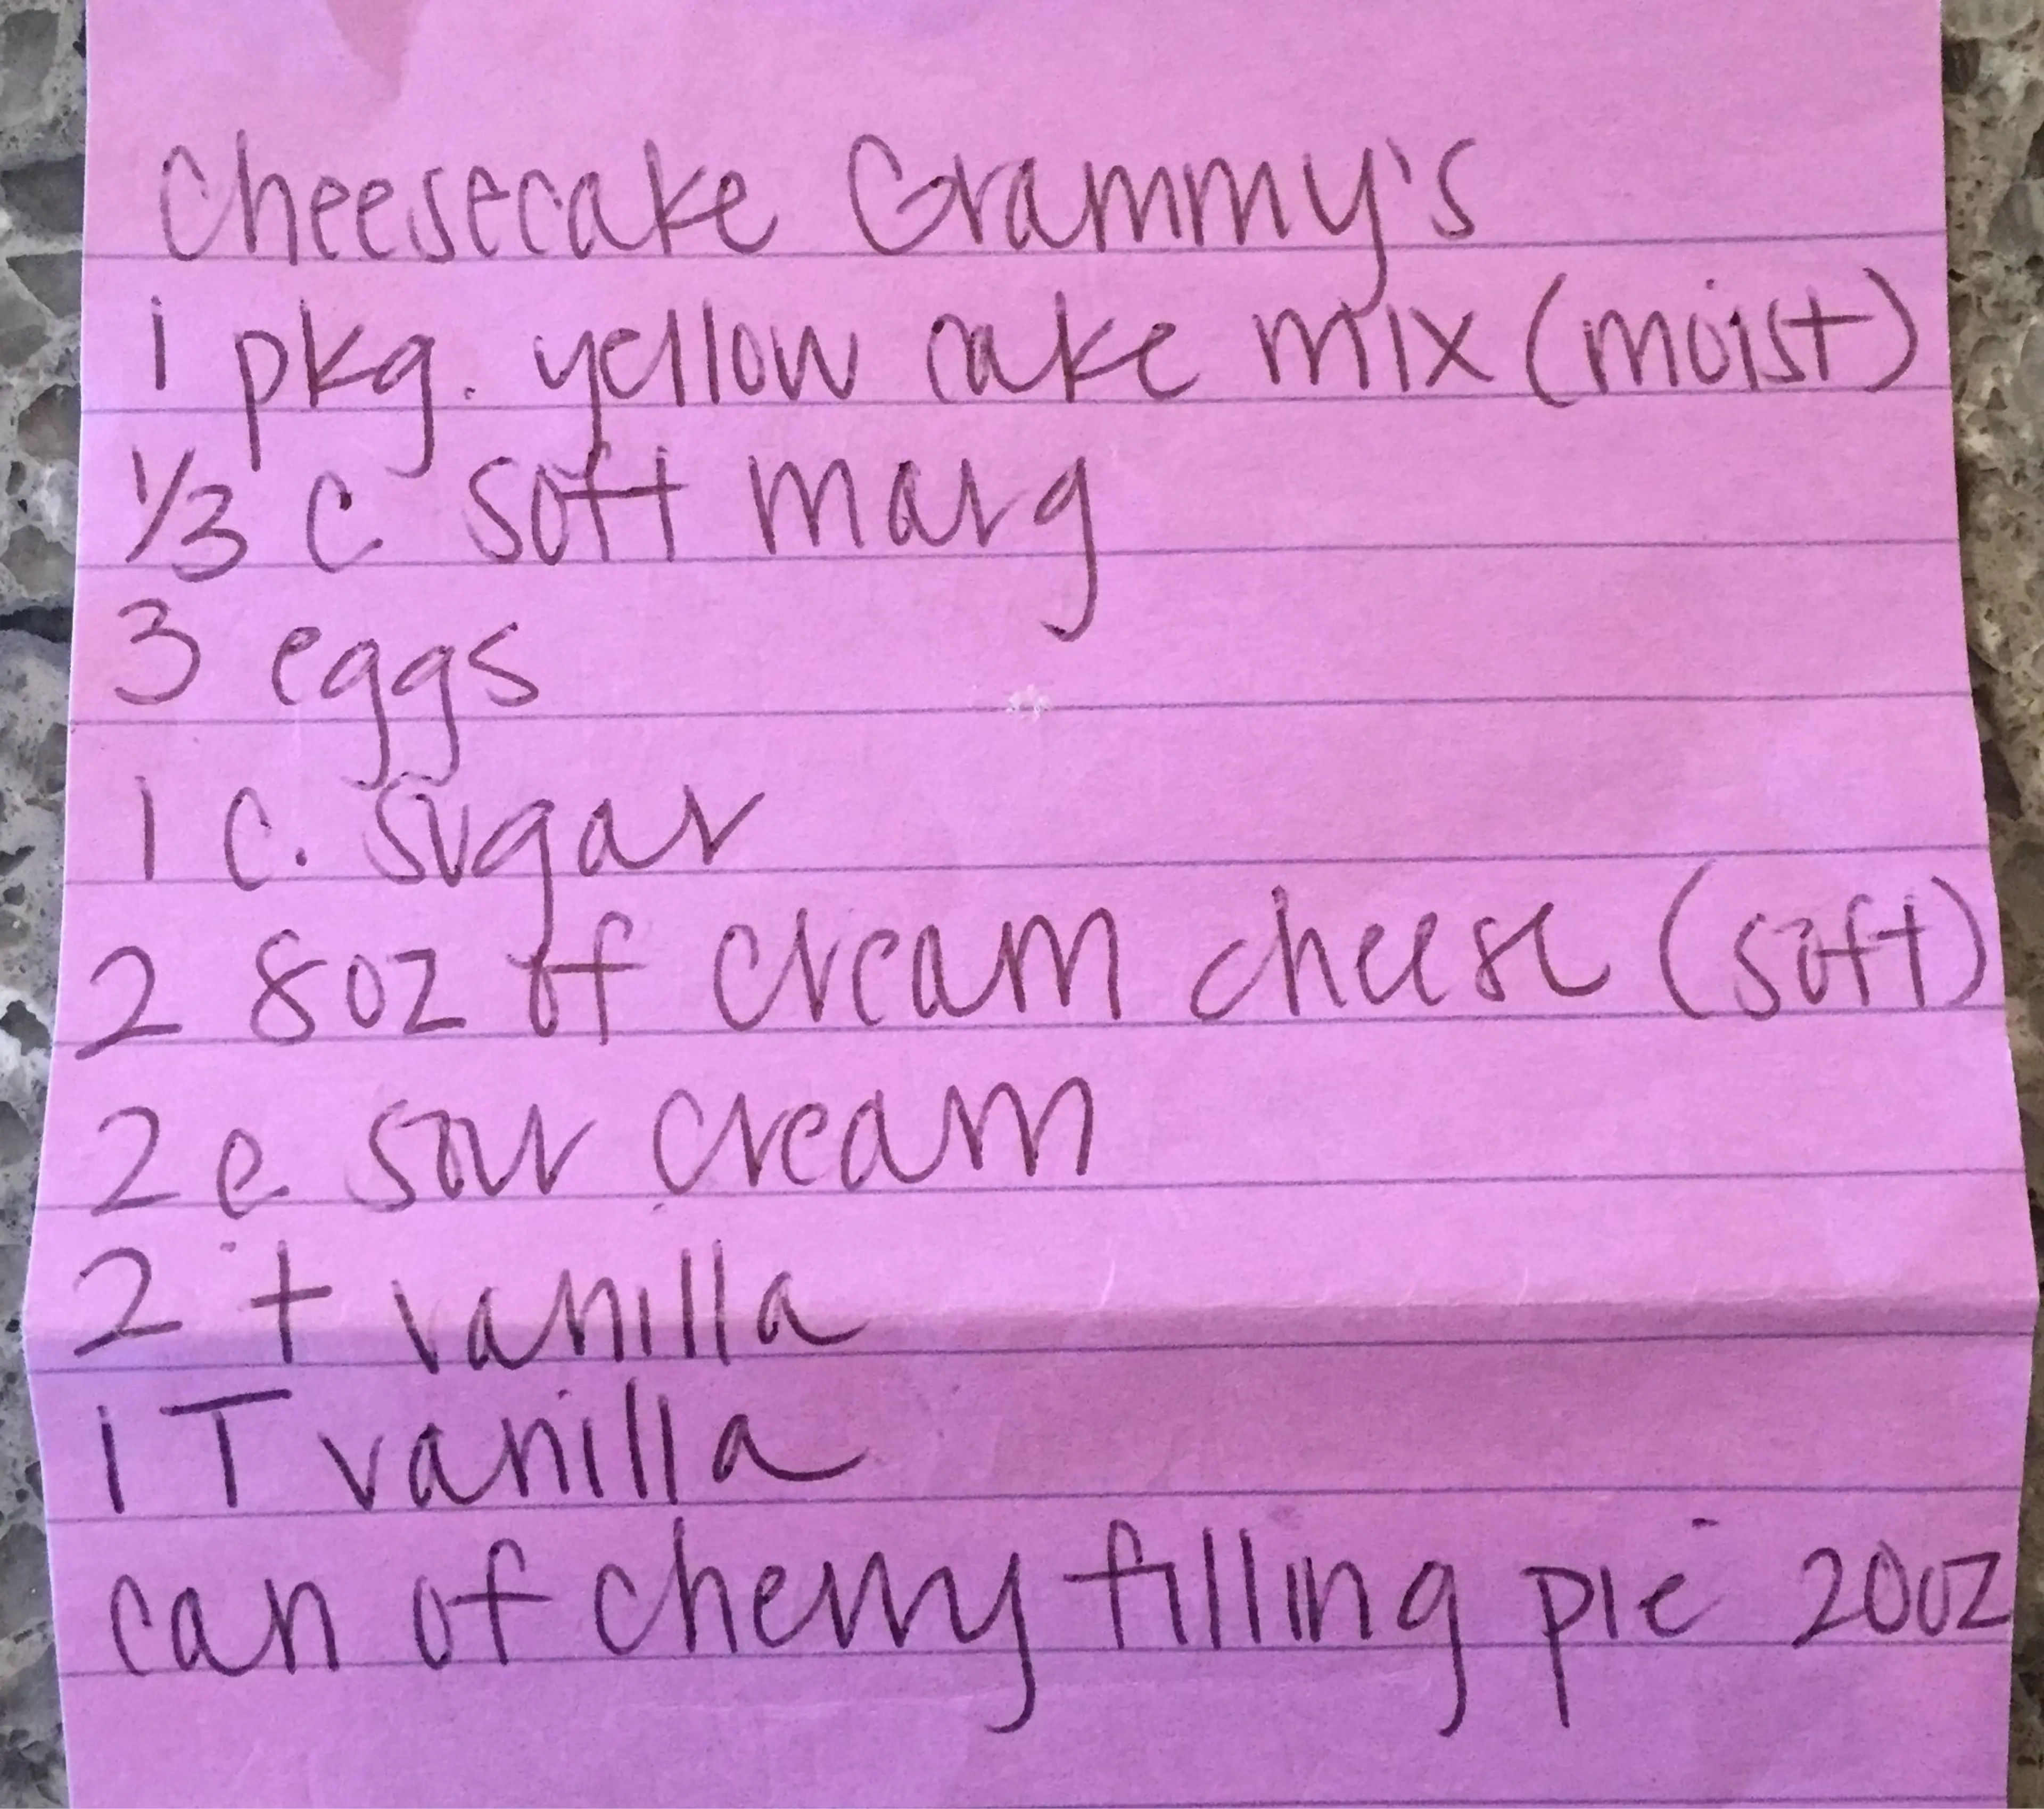 Cheesecake Grammy's
1 pkg. yellow cake mix (moist)
1/3 c soft marg
3 eggs
1 c. sugar
2 8oz of cream cheese (soft)
2 c sour cream
2 t vanilla
1 T vanilla
can of cherry filling pie 20oz